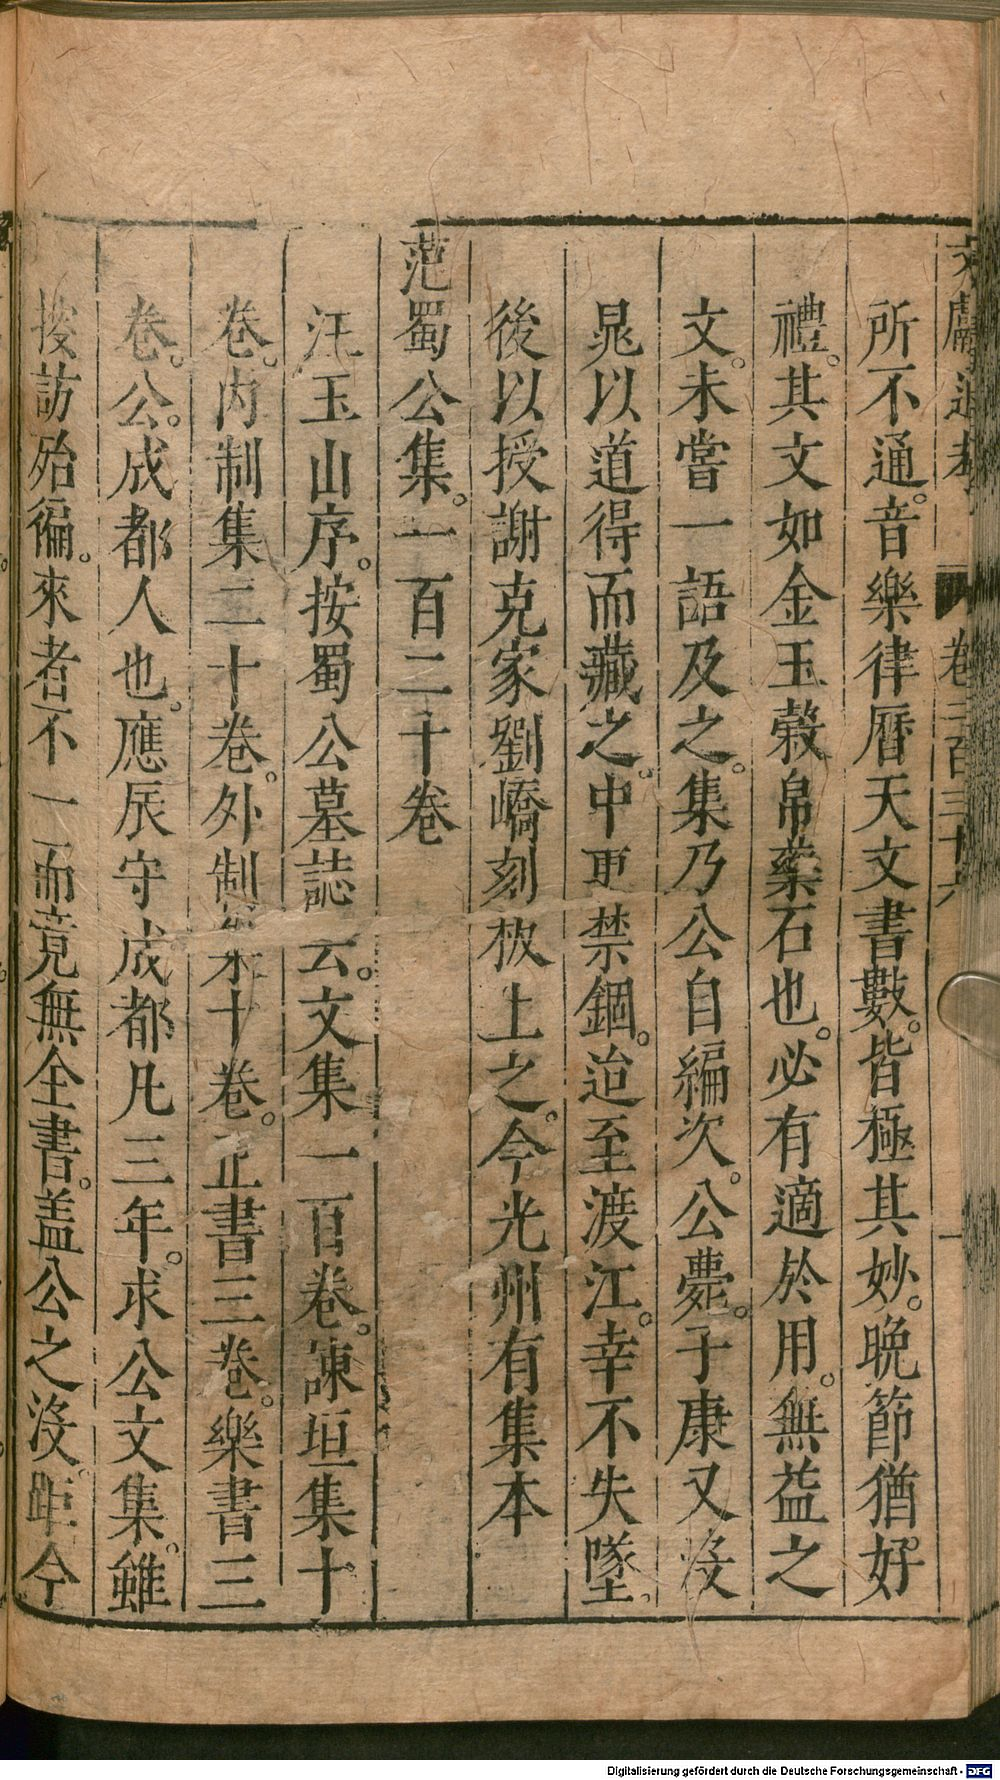 文獻通考 卷二百三十六
所不通。音樂律曆天文書數。皆極其妙。晚節猶好
禮。其文如金玉穀帛藥石也。必有適於用。無益之
文。未嘗一語及之。集乃公自編次。公薨。子康又沒
晁以道得而藏之。中更禁錮。迨至渡江。幸不失墜。
後以授謝克家劉嶠刻板上之。今光州有集本
范蜀公集。一百二十卷
汪玉山序。按蜀公墓誌云。文集一百卷。諫垣集十
卷。內制集三十卷。外制集十卷。正書三卷。樂書三
卷。公。成都人也。應辰守成都凡三年。求公文集。雖
搜訪殆徧。來者不一而竟無全書。蓋公之沒。距今
Digitalisierung gefördert durch die Deutsche Forschungsgemeinschaft - DFG